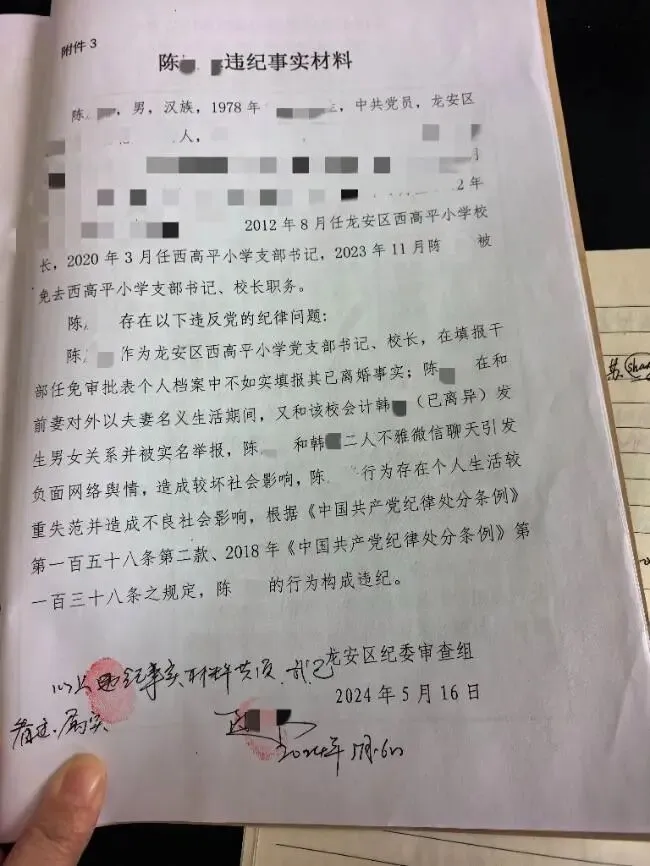 附件3
陈 违纪事实材料
陈 ，男，汉族，1978年 ，中共党员，龙安区
人，
2年
2012年8月任龙安区西高平小学校
长，2020年3月任西高平小学支部书记，2023年11月陈 被
免去西高平小学支部书记、校长职务。
陈 存在以下违反党的纪律问题：
陈 作为龙安区西高平小学党支部书记、校长，在填报干
部任免审批表个人档案中不如实填报其已离婚事实；陈 在和
前妻对外以夫妻名义生活期间，又和该校会计韩 （已离异）发
生男女关系并被实名举报，陈 和韩 二人不雅微信聊天引发
负面网络舆情，造成较坏社会影响，陈 行为存在个人生活较
重失范并造成不良社会影响，根据《中国共产党纪律处分条例》
第一百五十八条第二款、2018年《中国共产党纪律处分条例》第
一百三十八条之规定，陈 的行为构成违纪。
龙安区纪委审查组
2024年5月16日
以上违纪事实材料共1页，我已
看过，属实
2024年5月16日
苏